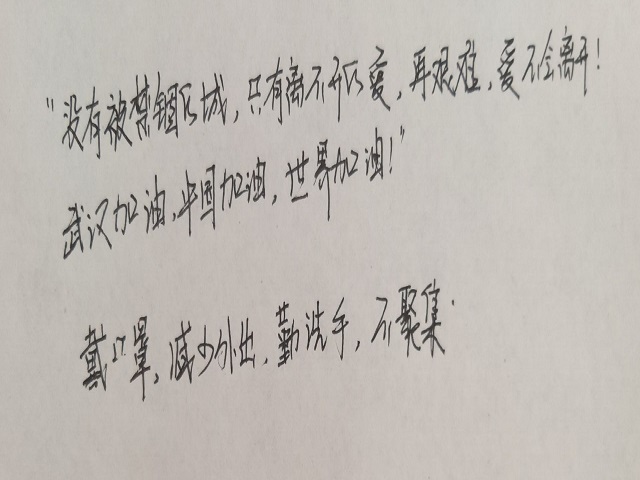 "没有被禁锢区城，只有离不开的爱，再艰难，爱不会离开！
武汉加油，中国加油，世界加油！"
戴口罩，减少外出，勤洗手，不聚集.